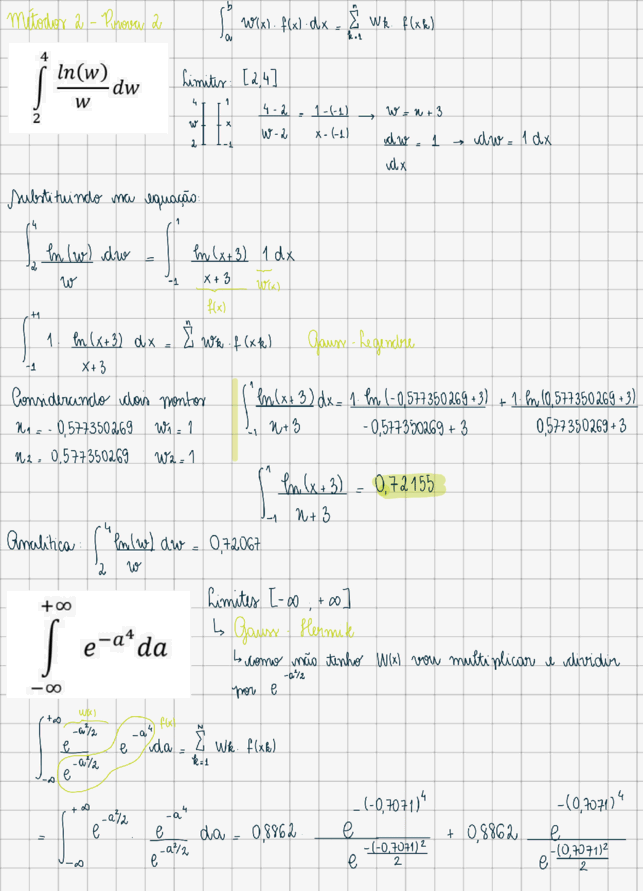 Métodos 2 - Prova 2
∫_a^b w(x) · f(x) · dx = ∑_{k=1}^n Wk · f(xk)
∫_2^4 ln(w)/w dw
Limites: [2,4]
4 w 2 | 1 x -1   (4-2)/(w-2) = (1-(-1))/(x-(-1)) → w = x + 3
dw/dx = 1 → dw = 1 dx
Substituindo na equação:
∫_2^4 ln(w)/w dw = ∫_{-1}^1 ln(x+3)/(x+3) 1 dx
f(x) W(x)
∫_{-1}^{+1} 1 · ln(x+3)/(x+3) dx = ∑^n Wk · f(xk) Gauss-Legendre
Considerando dois pontos
x1 = -0,577350269 w1 = 1
x2 = 0,577350269 w2 = 1
∫_{-1}^1 ln(x+3)/(x+3) dx = 1 · ln(-0,577350269+3)/(-0,577350269+3) + 1 · ln(0,577350269+3)/(0,577350269+3)
∫_{-1}^1 ln(x+3)/(x+3) = 0,72155
Analítica: ∫_2^4 ln(w)/w dw = 0,72067
∫_{-∞}^{+∞} e^{-a^4} da
Limites [-∞, +∞]
↳ Gauss-Hermite
↳ como não tenho W(x) vou multiplicar e dividir
por e^{-a²/2}
W(x) f(x)
∫_{-∞}^{+∞} e^{-a²/2}/e^{-a²/2} e^{-a^4} da = ∑_{k=1}^N Wk · f(xk)
= ∫_{-∞}^{+∞} e^{-a²/2} · e^{-a^4}/e^{-a²/2} da = 0,8862 e^{-(-0,7071)^4}/e^{-(-0,7071)²/2} + 0,8862 e^{-(0,7071)^4}/e^{-(0,7071)²/2}